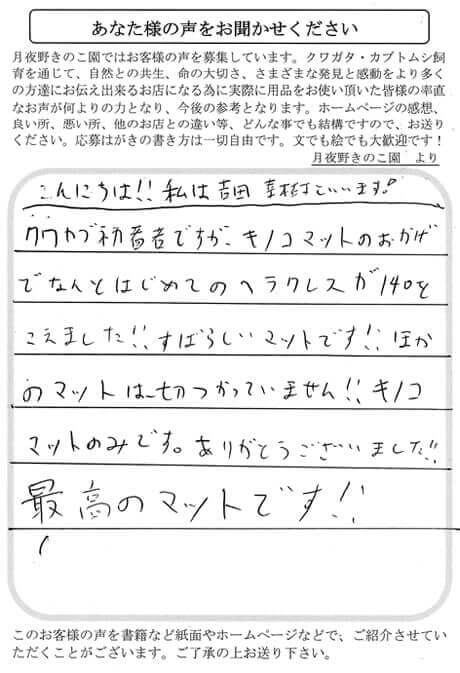 あなた様の声をお聞かせください
月夜野きのこ園ではお客様の声を募集しています。クワガタ・カブトムシ飼
育を通じて、自然との共生、命の大切さ、さまざまな発見と感動をより多く
の方達にお伝え出来るお店になる為に実際に用品をお使い頂いた皆様の率直
なお声が何よりの力となり、今後の参考となります。ホームページの感想、
良い所、悪い所、他のお店との違い等、どんな事でも結構ですので、お送り
ください。応募はがきの書き方は一切自由です。文でも絵でも大歓迎です！
月夜野きのこ園　より
こんにちは!! 私は吉田 幸樹といいます。
クワカブ初心者ですが、キノコマットのおかげ
でなんとはじめてのヘラクレスが140を
こえました!! すばらしいマットです!! ほか
のマットは一切つかっていません!! キノコ
マットのみです。ありがとうございました!!
最高のマットです!!
このお客様の声を書籍など紙面やホームページなどで、ご紹介させてい
ただくことがございます。ご了承の上お送り下さい。